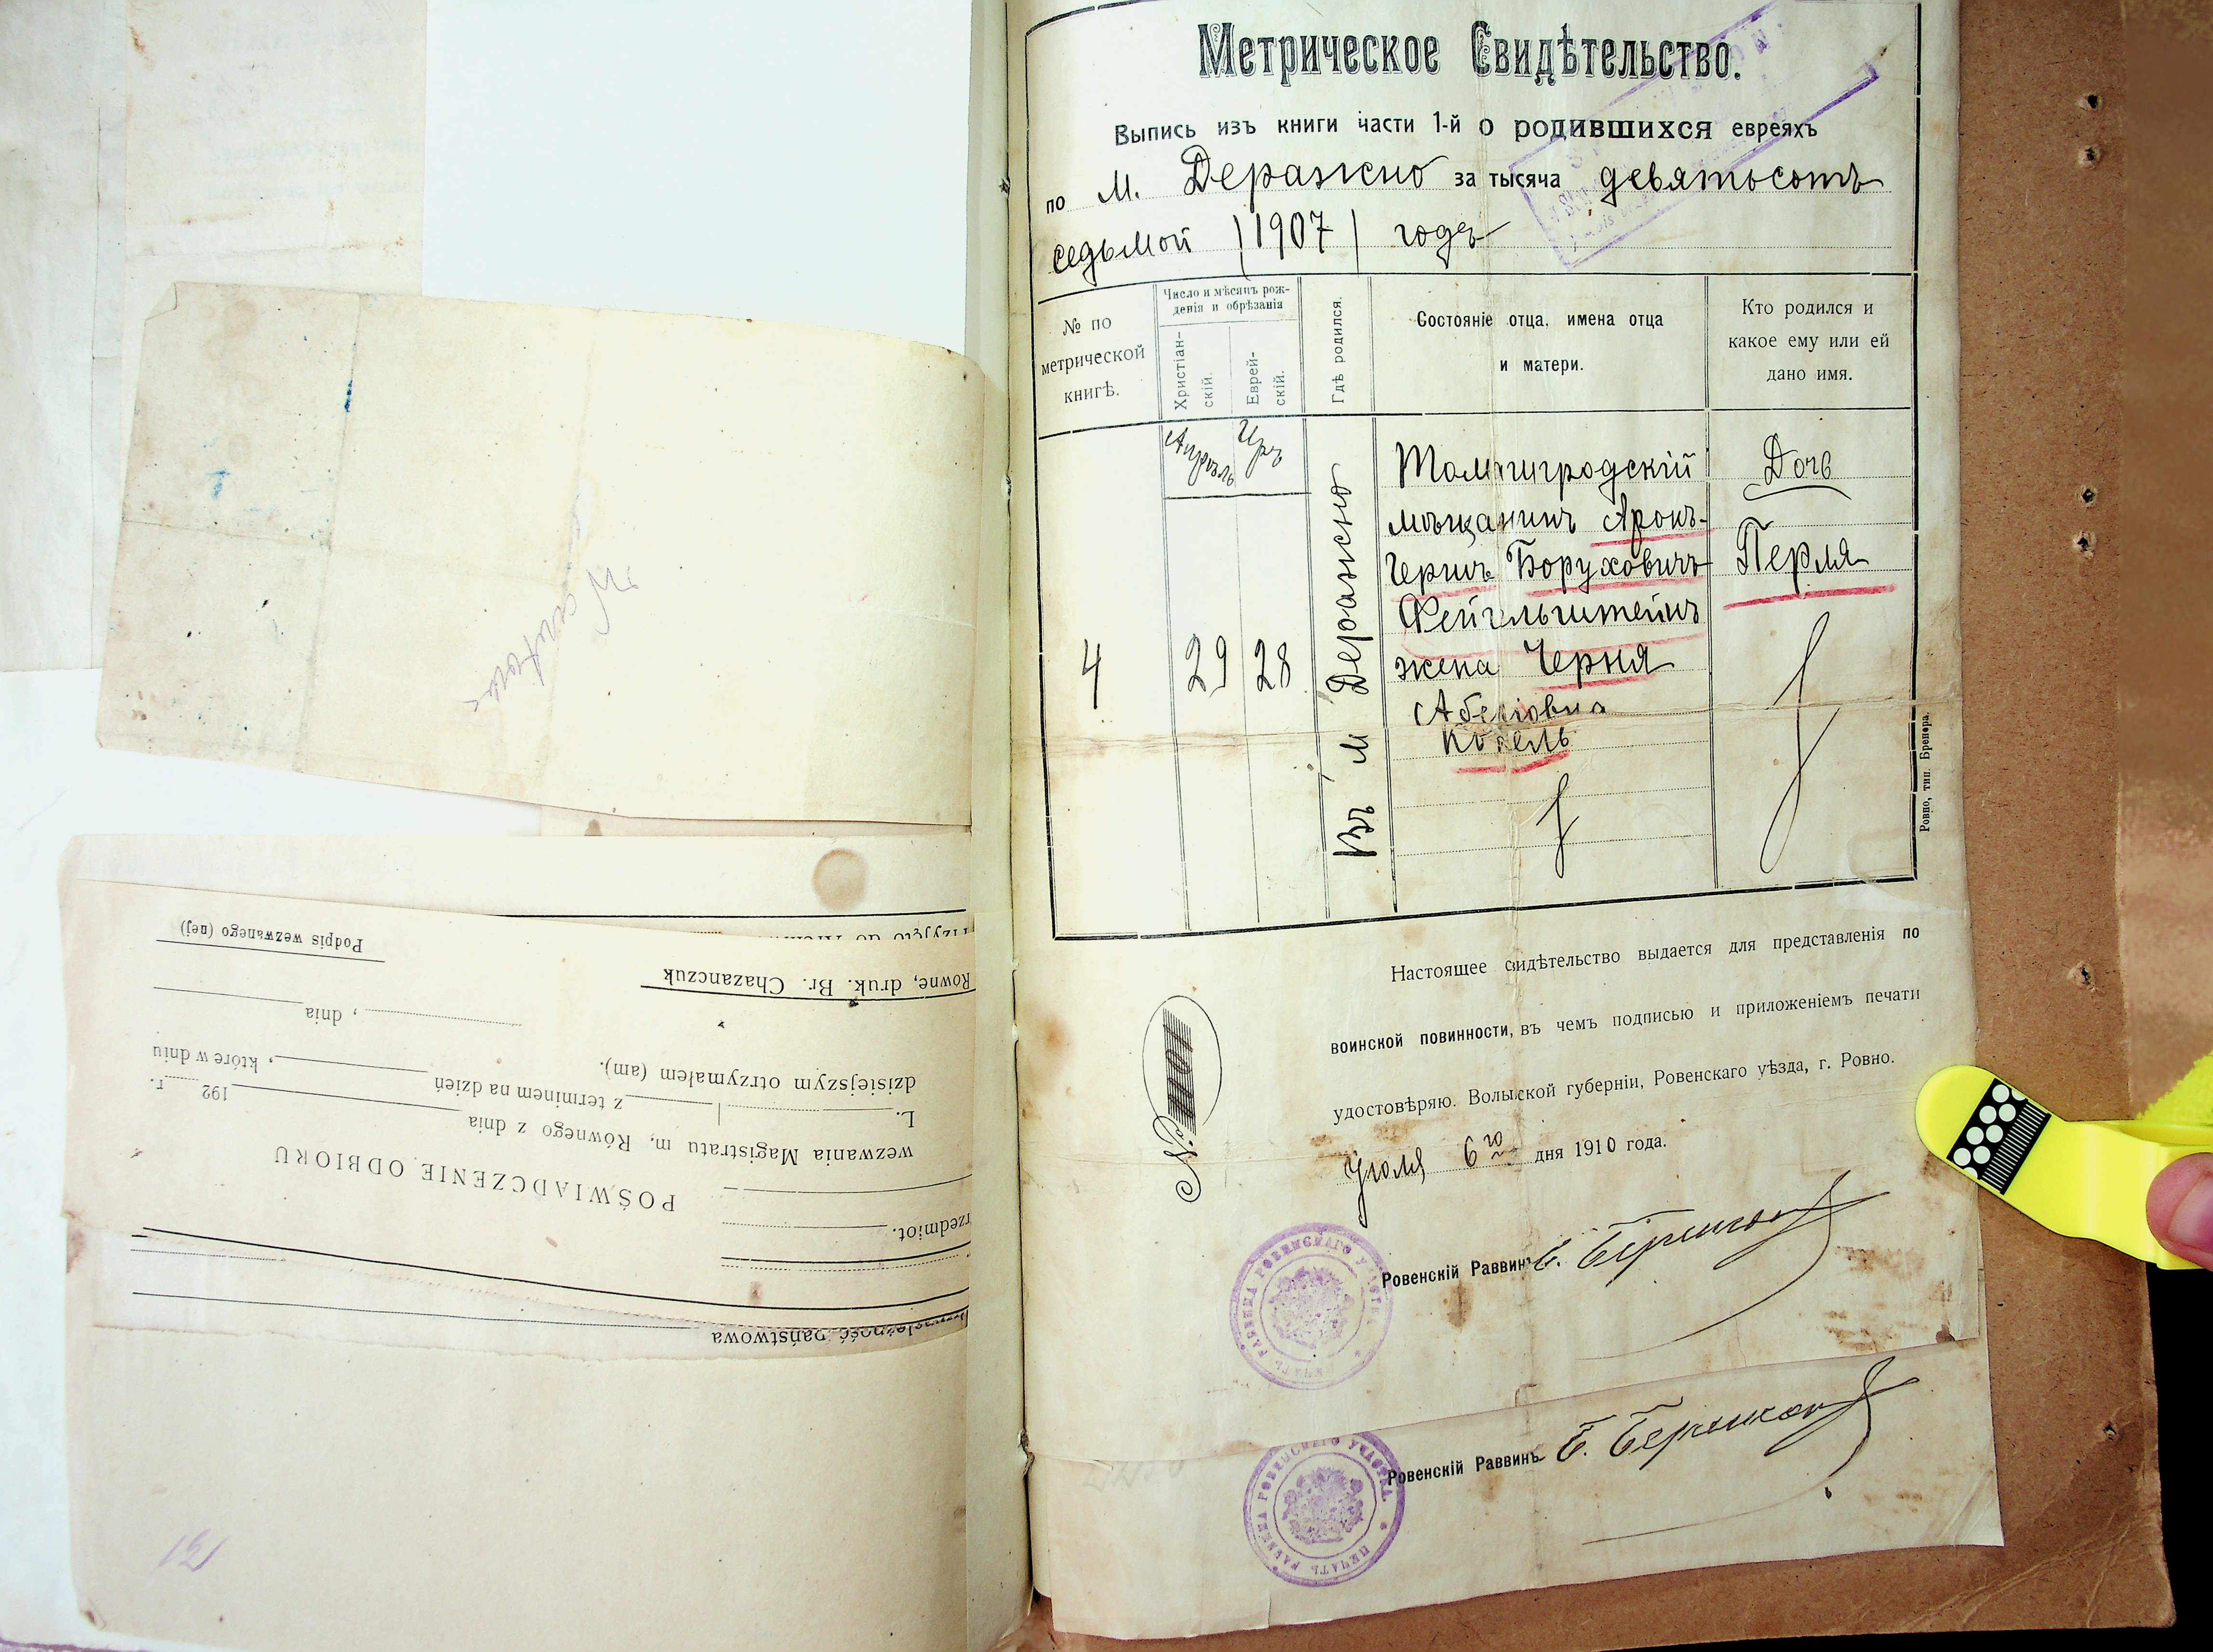 Метрическое Свидѣтельство.
Выпись изъ книги части 1-й о родившихся евреяхъ
по м. Деражно за тысяча девятьсотъ
седьмой (1907) годъ
№ по метрической книгѣ.
Число и мѣсяцъ рожденія и обрѣзанія
Христіан-
скій.
Еврей-
скій.
Гдѣ родился.
Состояніе отца, имена отца
и матери.
Кто родился и
какое ему или ей
дано имя.
Апрѣль
Іръ
4
29
28
Въ м Деражно
мѣщанинъ Аронъ-
Гершъ Боруховичъ
Фейгельштейнъ
жена Черня
Абелiовна
Дочь
Перля
Ровно, тип. Бренера.
Настоящее свидѣтельство выдается для представленія по
воинской повинности, въ чемъ подписью и приложеніемъ печати
удостовѣряю. Волынской губерніи, Ровенскаго уѣзда, г. Ровно.
Іюля 6го дня 1910 года.
№ 1101
Ровенскій Раввинъ
ПЕЧАТЬ РАВВИНА РОВЕНСКАГО УЧАСТКА
Ровенскій Раввинъ
ПЕЧАТЬ РАВВИНА РОВЕНСКАГО УЧАСТКА
państwowa
rzedmiot.
POŚWIADCZENIE ODBIORU
wezwania Magistratu m. Równego z dnia 192 r.
L. z terminem na dzień , które w dniu
dzisiejszym otrzymałem (am).
, dnia
Równe, druk. Br. Chazanczuk
Podpis wezwanego (nej)
121